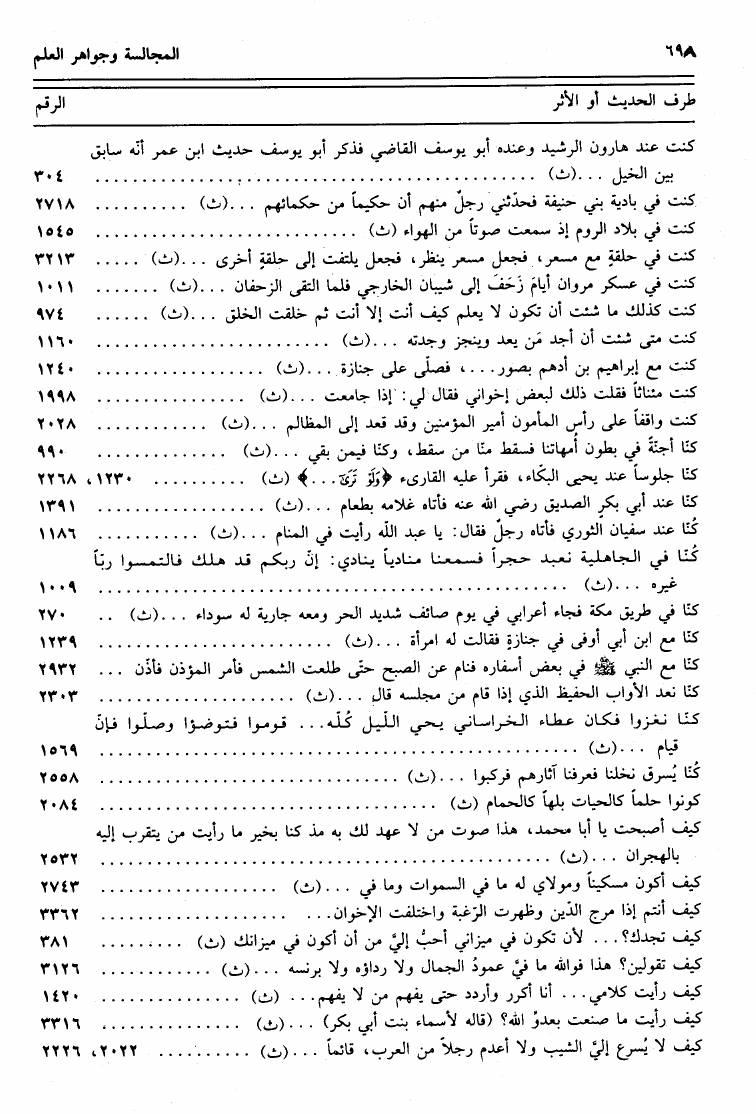 ٦٩٨ المجالسة وجواهر العلم
طرف الحديث أو الأثر الرقم
كنت عند هارون الرشيد وعنده أبو يوسف القاضي فذكر أبو يوسف حديث ابن عمر أنّه سابق
بين الخيل ...(ث) ........ ٣٠٤
كنت في بادية بني حنيفة فحدّثني رجلٌ منهم أن حكيماً من حكمائهم ...(ث) ........ ٢٧١٨
كنت في بلاد الروم إذ سمعت صوتاً من الهواء (ث) ........ ١٥٤٥
كنت في حلقة مع مسعر، فجعل مسعر ينظر، فجعل يلتفت إلى حلقةٍ أخرى ...(ث) ..... ٣٢١٣
كنت في عسكر مروان أيامَ زَحَفَ إلى شيبان الخارجي فلما التقى الزحفان ...(ث) ....... ١٠١١
كنت كذلك ما شئت أن تكون لا يعلم كيف أنت إلا أنت ثم خلقت الخلق ...(ث) ...... ٩٧٤
كنت متى شئت أن أجد مَن يعد وينجز وجدته ...(ث) ........ ١١٦٠
كنت مع إبراهيم بن أدهم بصور...، فصلّى على جنازة ...(ث) ........ ١٢٤٠
كنت مئناثاً فقلت ذلك لبعض إخواني فقال لي: إذا جامعت ...(ث) ........ ١٩٩٨
كنت واقفاً على رأس المأمون أمير المؤمنين وقد قعد إلى المظالم ...(ث) ........ ٢٠٢٨
كنّا أجنّةً في بطون أُمهاتنا فسقط منّا من سقط، وكنّا فيمن بقي ...(ث) ........ ٩٩٠
كنّا جلوساً عند يحيى البكّاء، فقرأ عليه القارىء ﴿وَلَوْ تَرَىٰٓ...﴾ (ث) ........ ١٢٣٠، ٢٢٦٨
كنّا عند أبي بكرٍ الصديق رضي الله عنه فأتاه غلامه بطعام ...(ث) ........ ١٣٩١
كُنّا عند سفيان الثوري فأتاه رجلٌ فقال: يا عبد اللّه رأيت في المنام ...(ث) ........ ١١٨٦
كُنّا في الجاهلية نعبد حجراً فسمعنا منادياً ينادي: إنّ ربكم قد هلك فالتمسوا ربّاً
غيره ...(ث) ........ ١٠٠٩
كنّا في طريق مكة فجاء أعرابي في يوم صائف شديد الحر ومعه جارية له سوداء ...(ث) .. ٢٧٠
كنّا مع ابن أبي أوفى في جنازةٍ فقالت له امرأة ...(ث) ........ ١٢٣٩
كنّا مع النبي ﷺ في بعض أسفاره فنام عن الصبح حتّى طلعت الشمس فأمر المؤذن فأذّن ... ٢٩٣٢
كنّا نعد الأواب الحفيظ الذي إذا قام من مجلسه قال ...(ث) ........ ٢٣٠٣
كنّا نغزوا فكان عطاء الخراساني يحي اللّيل كُلّه... قوموا فتوضؤا وصلّوا فإنّ
قيام ...(ث) ........ ١٥٦٩
كُنّا يُسرق نخلنا فعرفنا آثارهم فركبوا ...(ث) ........ ٢٥٥٨
كونوا حلماً كالحيات بلهاً كالحمام (ث) ........ ٢٠٨٤
كيف أصبحت يا أبا محمد، هذا صوت من لا عهد لك به مذ كنا بخير ما رأيت من يتقرب إليه
بالهجران ...(ث) ........ ٢٥٣٢
كيف أكون مسكيناً ومولاي له ما في السموات وما في ...(ث) ........ ٢٧٤٣
كيف أنتم إذا مرج الدّين وظهرت الرّغبة واختلفت الإخوان... ........ ٣٣٦٢
كيف تجدك؟... لأن تكون في ميزاني أحبُّ إليَّ من أن أكون في ميزانك (ث) ........ ٣٨١
كيف تقولين؟ هذا فوالله ما فيَّ عمودُ الجمال ولا رداؤه ولا برنسه ...(ث) ........ ٣١٢٦
كيف رأيت كلامي... أنا أكرر وأردد حتى يفهم من لا يفهم... (ث) ........ ١٤٢٠
كيف رأيت ما صنعت بعدوِّ الله؟ (قاله لأسماء بنت أبي بكر) ...(ث) ........ ٣٣١٦
كيف لا يُسرع إليَّ الشيب ولا أعدم رجلاً من العرب، قائماً ...(ث) ........ ٢٠٢٢، ٢٢٢٦